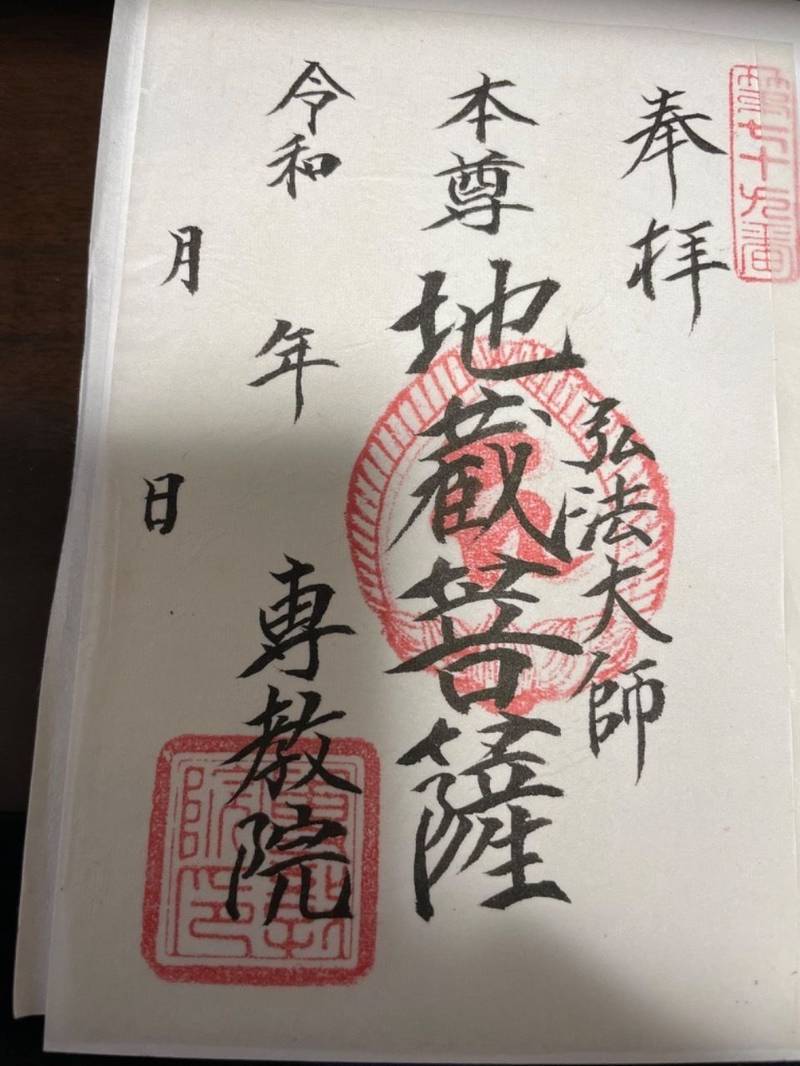 第七十九番
奉拝
弘法大師
本尊 地蔵菩薩
令和 年
月 日
専教院
専教院印